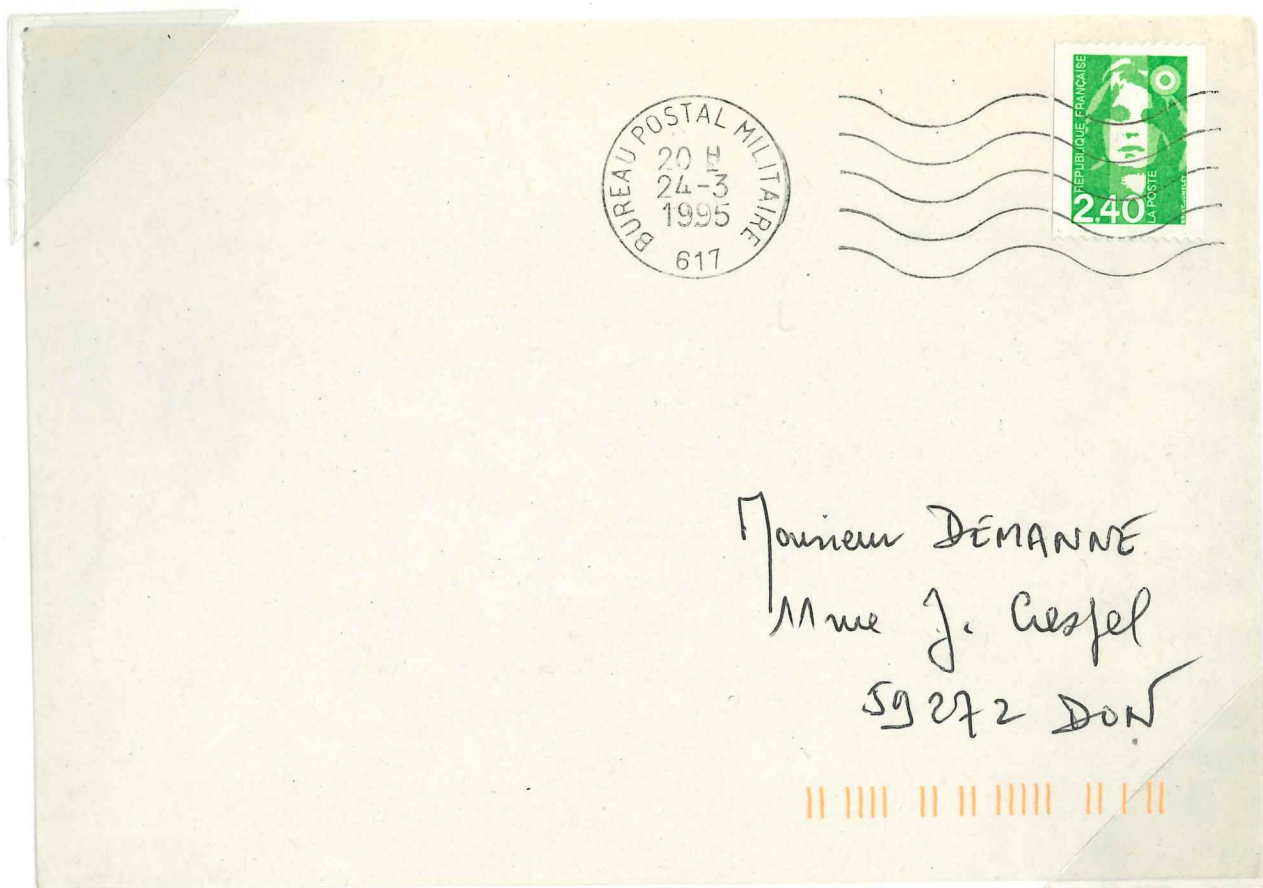 BUREAU POSTAL MILITAIRE
20 H
24-3
1995
617
RÉPUBLIQUE FRANÇAISE
2,40
LA POSTE
Monsieur DEMANNE
11 rue J. Crespel
59272 DON